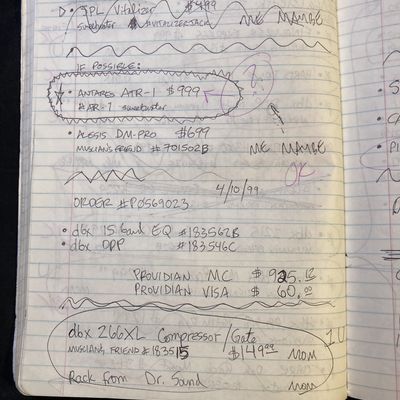 D • SPL/Vitalizer $499
Sweetwater #VITALIZERJACK
ME MAYBE
IF POSSIBLE:
• ANTARES ATR-1 $999
#AR-1 Sweetwater
?
• ALESIS DM-PRO $699
MUSCIANS FRIEND #701502B
ME MAYBE
OK
4/10/99
ORDER #P0569023
• dbx 15 band EQ #183562B
• dbx DDP #183546C
PROVIDIAN MC $925.
PROVIDIAN VISA $60.00
dbx 266XL Compressor/Gate 1U
MUSCIANS FRIEND #183515 $149.99 MOM
Rack from Dr. Sound MOM